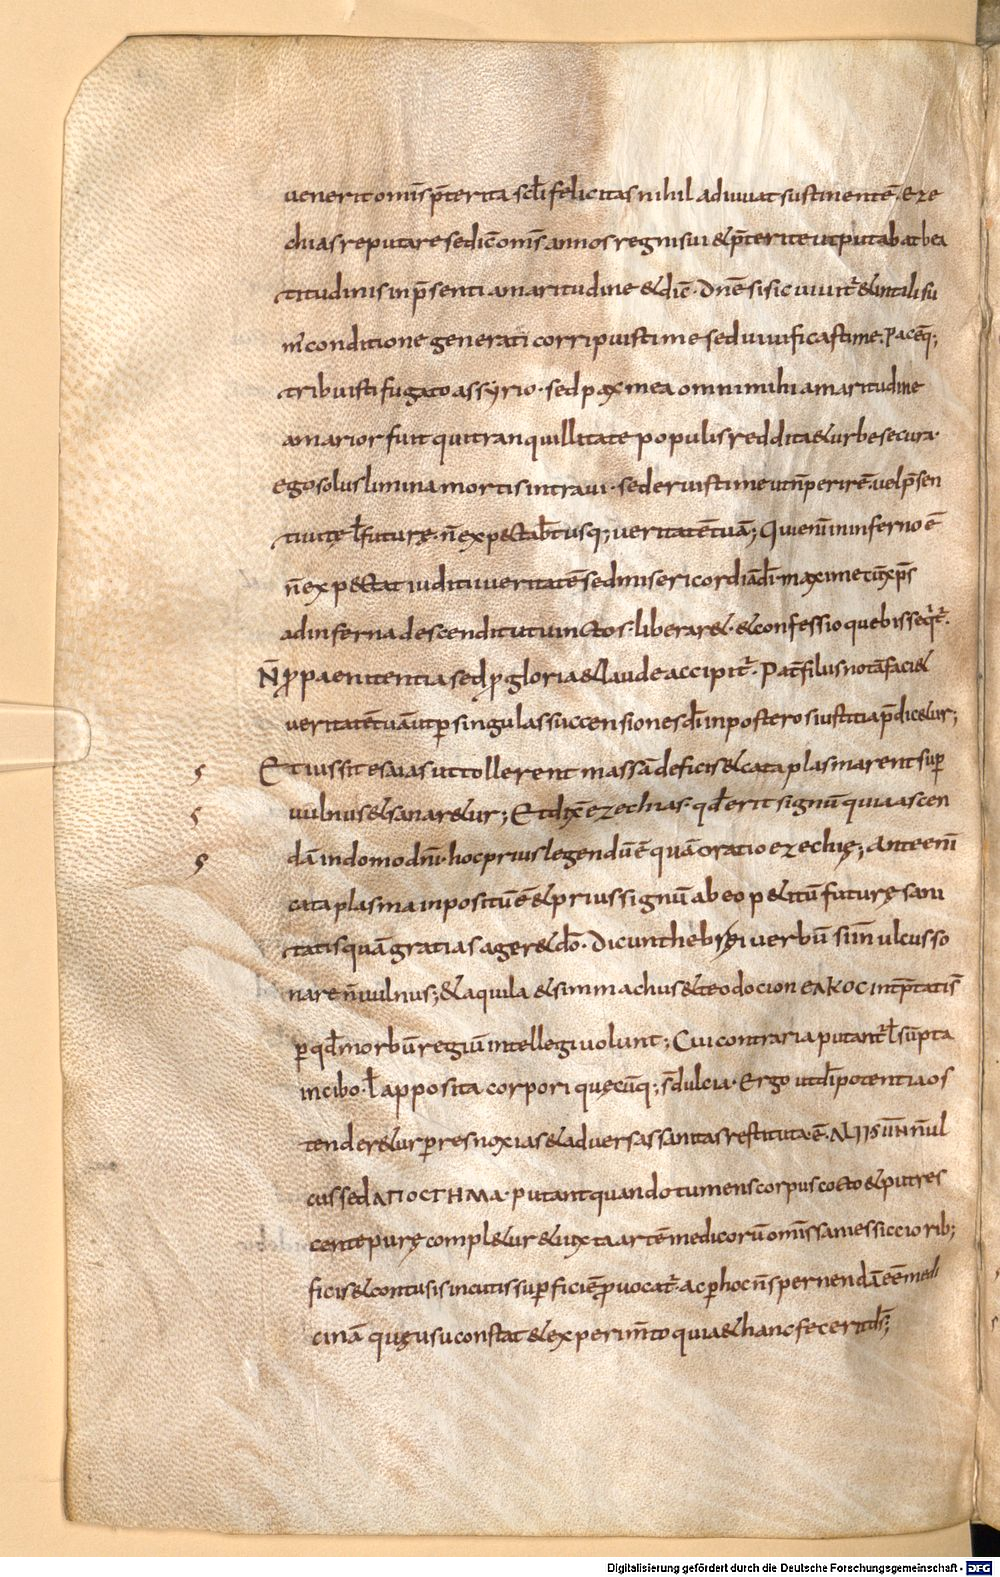 uenerit om̄s p̄terita scl̄i felicitas nihil adiuuat sustinentē. Eze
chias reputare se dic̄ om̄s annos regni sui & p̄terite ut putabat bea
titudinis in p̄senti amaritudine & dic̄. Dn̄e si sic uiuit᷑ & in tali su
m᷒ conditione generati corripuisti me sed uiuificasti me. Paceq̄;
tribuisti fugato assyrio. sed pax mea omni mihi amaritudine
amarior fuit qui tranquillitate populis reddita & urbe secura.
ego solus limina mortis intraui. sed eruisti me ut n̄ perirē. uel p̄sen
ti uitę ł futurę. n̄ exp&tab̄t usq; ueritatē tuā; Qui enī in inferno ē
n̄ exp&tat iudicii ueritatē sed misericordiā dī maxime cū xp̄s
ad inferna descendit ut uinctos liberar&. & confessio que bis seq̇t᷑.
N̄ ꝓ paenitentia sed ꝓ gloria & laude accipit᷑. Pat̄ filiis notā faci&
ueritatē tuā ut ꝑ singulas successiones dī in postero si iustitia p̄dic&ur;
Et iussit esaias ut tollerent massā de ficis & cataplasmarent suꝑ
uulnus & sanar&ur; Et dix̄ ezechias. qd̄ erit signū quia ascen
dā in domo dn̄i. hoc prius legendū ē quā oratio ezechię; Ante enī
cataplasma inpositū ē & prius signū ab eo p&itū futurę sani
tatis quā gratias ager& dō. Dicunt hebręi uerbū siin ulcus so
nare n̄ uulnus; & aquila & simmachus & teodocion ΕΛΚΟC int̄p̄tati s̄
ꝑ qd̄ morbū regiū intellegi uolunt; Cui contraria putant᷑ ł sūpta
in cibo. ł apposita corpori quęcūq; s̄ dulcia. Ergo ut dī potentia os
tender&ur ꝑ res noxias & aduersas sanitas restituta ē. Alii siin n̄ ul
cus sed ΑΠΟCΤΗΜΑ. putant quando tumens corpus cocto & putres
cente pure compl&ur & iuxta artē medicorū om̄is sanies sicciorib;
ficis & contusis in cutis suꝑficiē ꝓuocat᷑. ac ꝑ hoc n̄ spernendā eē medi
cinā quę usu constat & experim̄to quia & hanc fecerit ds̄;
Digitalisierung gefördert durch die Deutsche Forschungsgemeinschaft - DFG